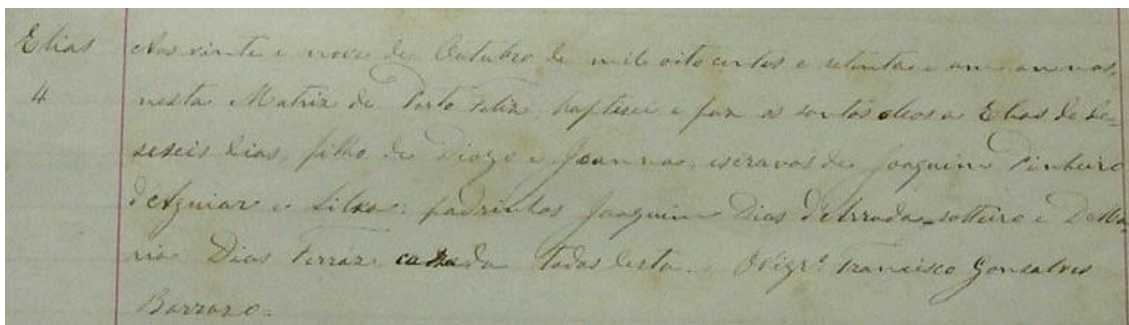 Elias
4
Aos vinte e nove de Outubro de mil oito centos e setenta e um annos,
nesta Matriz de Porto Feliz baptisei e puz os santos oleos a Elias de de-
seseis dias, filho de Diogo e Joanna, escravos de Joaquim Pinheiro
d'Aguiar e Silva: padrinhos Joaquim Dias d'Arruda solteiro e D. Ma-
ria Dias Ferraz casada todos desta. O Vigrº. Francisco Gonsalves
Barrozo.